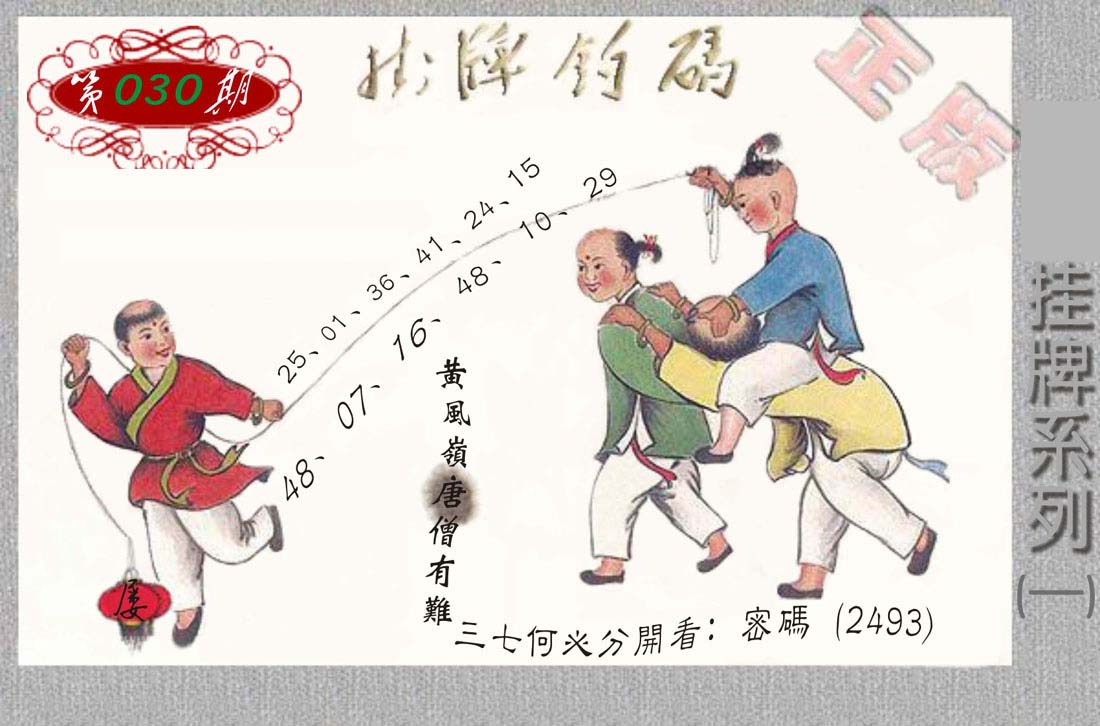 第030期
掛牌釣碼
正版
25、01、36、41、24、15
48、07、16、48、10、29
黃風嶺唐僧有難
屡
三七何必分開看：密碼 (2493)
挂牌系列(一)